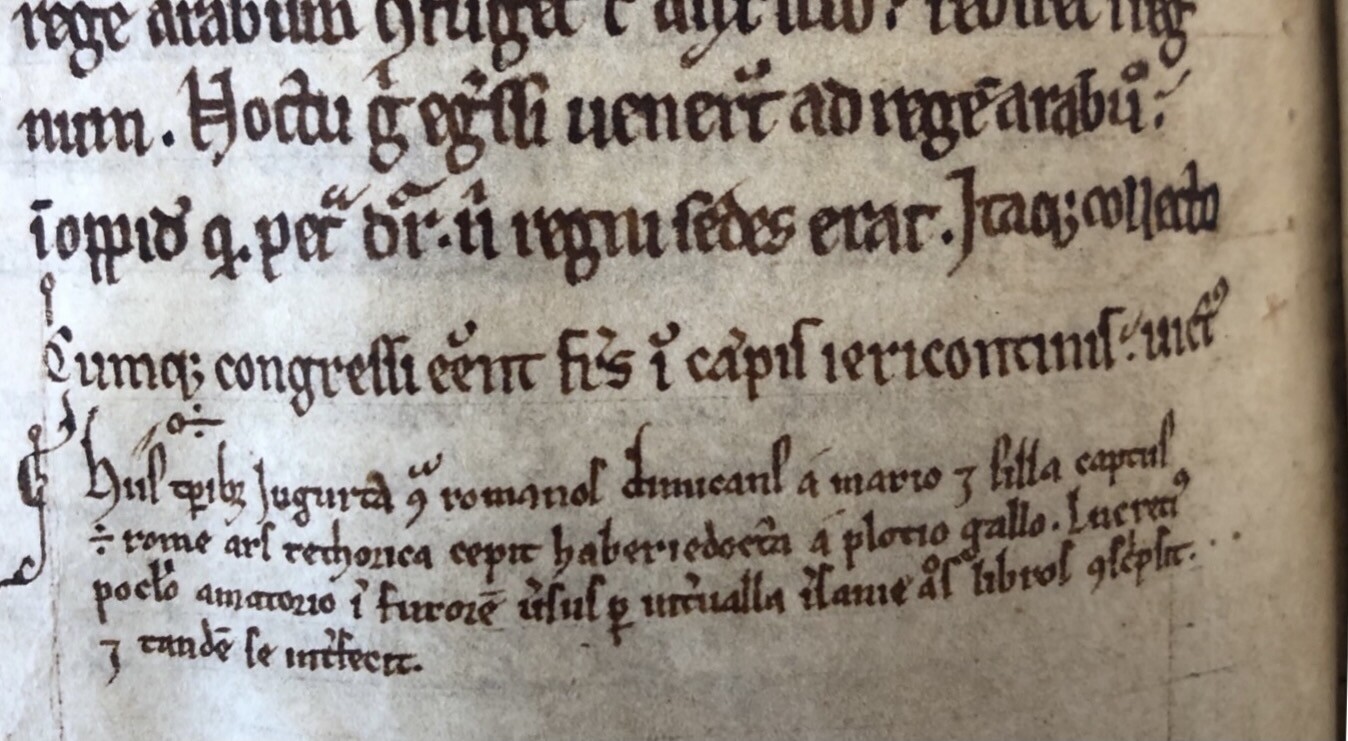 rege arabum ꝯfuget
num. Noctu g̍ eg̍ssi uenerᷣt ad regē arabū.
ī oppidō q. petᵃ dr̄. ū regni sedes erat. Itaqꝫ collecto
Cumqꝫ congressi eēnt frīs ī cāpis iericontinis. uictꝰ
Hus tꝑibꝫ Iugurta ꝯᵃ romanos dimicans á mario ⁊ silla captus
÷ rome ars rethorica cepit haberi edocta a plotio gallo. Lucretiꝰ
poclo amatorio ī furorē ūsus ꝑ int̄ualla īsanie aͦs libros ꝯsc̍psit.
⁊ tandē se int̄fecit.